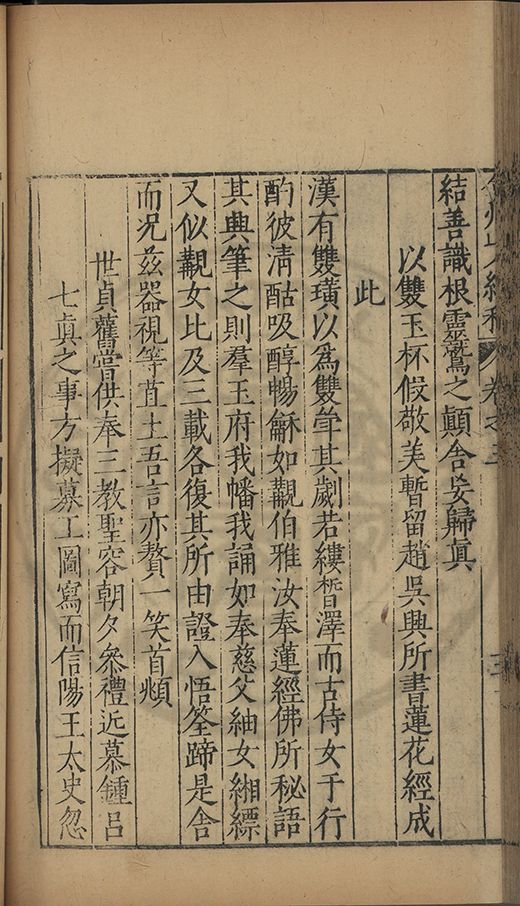 弇州山人續稿 卷之三
結善識根靈鷲之顛舍妄歸眞
以雙玉杯假敬美暫留趙吳興所書蓮花經成
此
漢有雙璜以爲雙斝其劌若縷晳澤而古侍女于行
酌彼淸酤吸醇暢龢如覯伯雅汝奉蓮經佛所秘語
其典筆之則羣玉府我幡我誦如奉慈父紬女緗縹
又似覯女比及三載各復其所由證入悟筌蹄是舍
而况兹器視等苴土吾言亦贅一笑首頫
世貞舊嘗供奉三教聖容朝夕叅禮近慕鍾呂
七眞之事方擬募工圖寫而信陽王太史忽